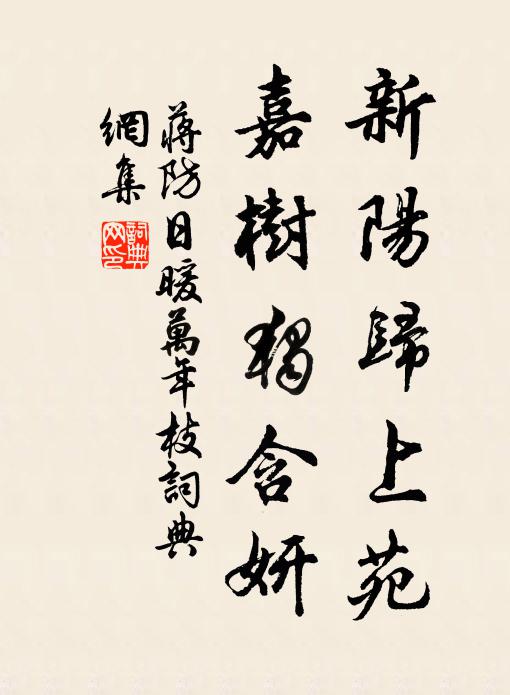 新陽歸上苑
嘉樹獨含妍
蔣防日暖萬年枝詞典
網集
詞典
网印